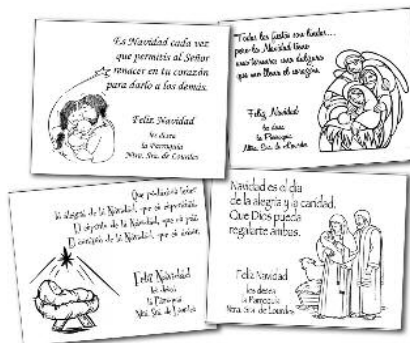 Es Navidad cada vez
que permitís al Señor
renacer en tu corazón
para darlo a los demás.
Feliz Navidad
les desea
la Parroquia
Ntra. Sra. de Lourdes
Todas las fiestas son lindas...
pero la Navidad tiene
una ternura, una dulzura
que nos llena el corazón.
Feliz Navidad
les desea
la Parroquia
Ntra. Sra. de Lourdes
Que podamos tener
la alegría de la Navidad, que es
El espíritu de la Navidad, que es paz
El corazón de la Navidad, que es
Feliz Navidad
les desea
la Parroquia
Ntra. Sra. de Lourdes
Navidad es el día
de la alegría y la caridad.
Que Dios pueda
regalarte ambas.
Feliz Navidad
les desea
la Parroquia
Ntra. Sra. de Lourdes